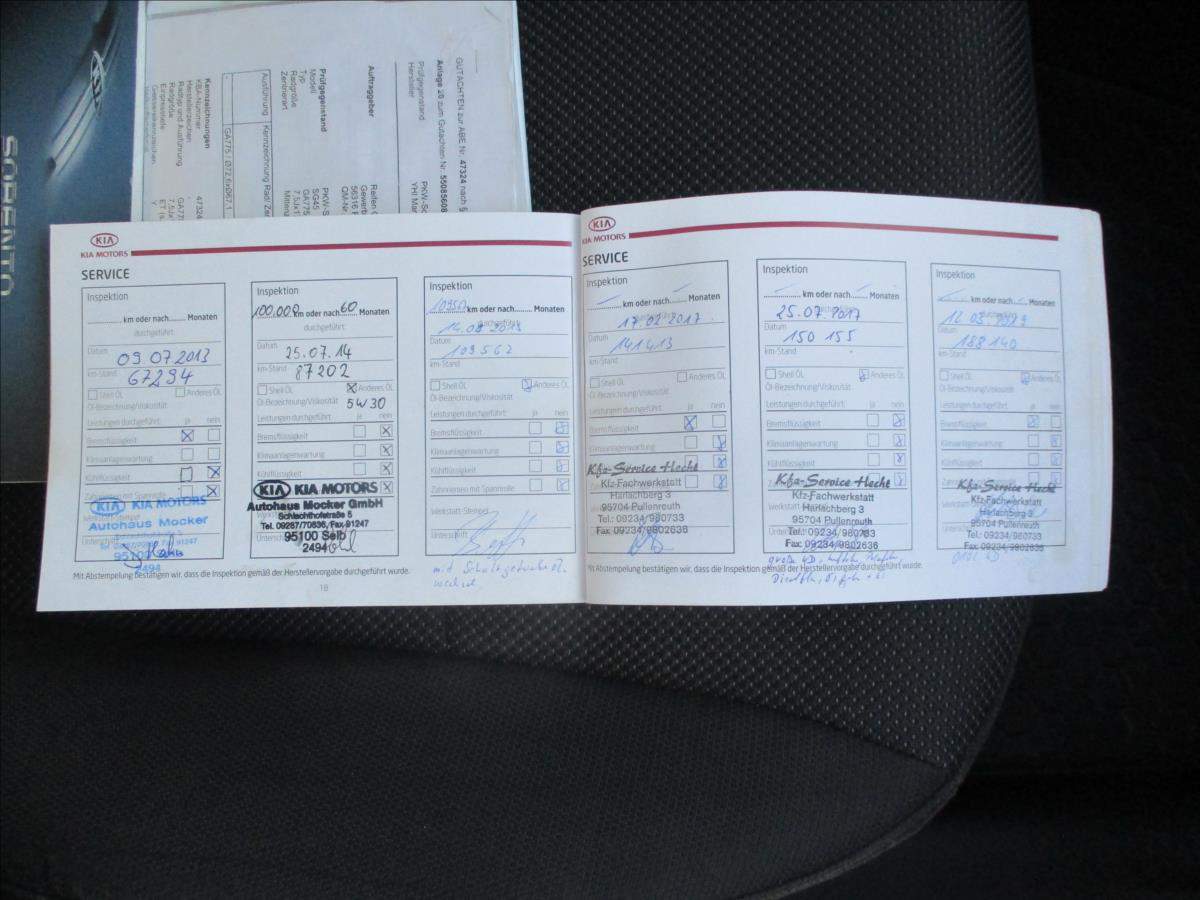 SORENTO
KIA
GUTACHTEN zur ABE Nr. 47324 nach §
Anlage 20 zum Gutachten Nr. 55085608
Prüfgegenstand PKW-So
Hersteller YHI Ma
Auftraggeber Reifen
Gewerb
56316
QM-Nr.
Prüfgegenstand PKW-S
Modell SG45
Typ GA775
Radgröße 7,5Jx1
Zentrierart Mitten
Ausführung Kennzeichnung Rad/ Ze
- GA775 / Ø72,6xØ67,1
Kennzeichnungen
KBA-Nummer 47324
Herstellerzeichen
Radtyp und Ausführung GA77
Radgröße 7,5J
Einpresstiefe ET (s.
KIA
KIA MOTORS
SERVICE
Inspektion
km oder nach Monaten
durchgeführt:
Datum 09.07.2013
km-Stand 67294
Shell ÖL Anderes ÖL
Öl-Bezeichnung/Viskosität
Leistungen durchgeführt: ja nein
Bremsflüssigkeit
Klimaanlagenwartung
Kühlflüssigkeit
Zahnriemen mit Spannrolle
KIA MOTORS
Autohaus Mocker
2494
Inspektion
100.000 km oder nach 60 Monaten
durchgeführt:
Datum 25.07.14
km-Stand 87202
Shell ÖL Anderes ÖL
Öl-Bezeichnung/Viskosität 5W30
Leistungen durchgeführt: ja nein
Bremsflüssigkeit
Klimaanlagenwartung
Kühlflüssigkeit
KIA KIA MOTORS
Autohaus Mocker GmbH
Schlachthofstraße 5
Tel. 09287/70636, Fax-91247
95100 Selb
2494
Inspektion
109562 km oder nach Monaten
durchgeführt:
Datum
109562
km-Stand
Shell ÖL Anderes ÖL
Öl-Bezeichnung/Viskosität:
Leistungen durchgeführt: ja nein
Bremsflüssigkeit
Klimaanlagenwartung
Kühlflüssigkeit
Zahnriemen mit Spannrolle
Werkstatt-Stempel
Unterschrift
mit
wechsel
Mit Abstempelung bestätigen wir, dass die Inspektion gemäß der Herstellervorgabe durchgeführt wurde.
18
KIA
KIA MOTORS
SERVICE
Inspektion
km oder nach Monaten
17.02.2017
Datum
141413
km-Stand
Shell ÖL Anderes ÖL
Öl-Bezeichnung/Viskosität
Leistungen durchgeführt: ja nein
Bremsflüssigkeit
Klimaanlagenwartung
Kühlflüssigkeit
Kfz-Service Hecht
Kfz-Fachwerkstatt
Harlachberg 3
95704 Pullenreuth
Tel.: 09234/980733
Fax 09234/9802636
Inspektion
km oder nach Monaten
25.07.2017
Datum
150 155
km-Stand
Shell ÖL Anderes ÖL
Öl-Bezeichnung/Viskosität:
Leistungen durchgeführt: ja nein
Bremsflüssigkeit
Klimaanlagenwartung
Kühlflüssigkeit
Kfz-Service Hecht
Kfz-Fachwerkstatt
Harlachberg 3
95704 Pullenreuth
Tel.: 09234/980733
Fax: 09234/9802636
Inspektion
km oder nach Monaten
Datum
188140
km-Stand
Shell ÖL Anderes ÖL
Öl-Bezeichnung/Viskosität:
Leistungen durchgeführt: ja nein
Bremsflüssigkeit
Klimaanlagenwartung
Kühlflüssigkeit
Kfz-Service Hecht
Kfz-Fachwerkstatt
Harlachberg 3
95704 Pullenreuth
Tel.: 09234/980733
Fax: 09234/9802636
Mit Abstempelung bestätigen wir, dass die Inspektion gemäß der Herstellervorgabe durchgeführt wurde.